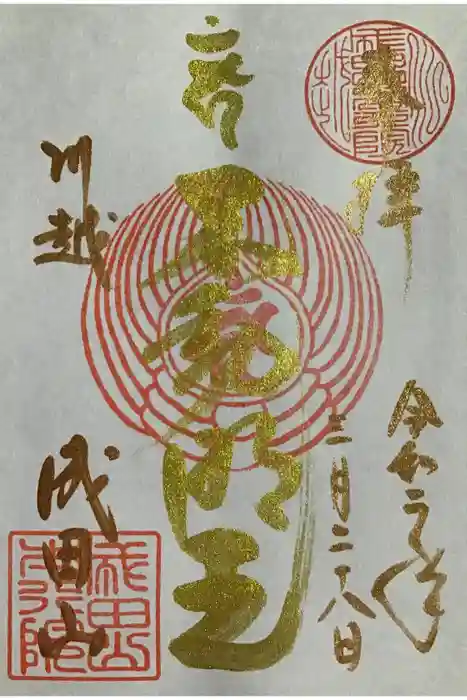 奉拝
令和二年
三月二十八日
不動明王
川越
成田山
成田山
本行院